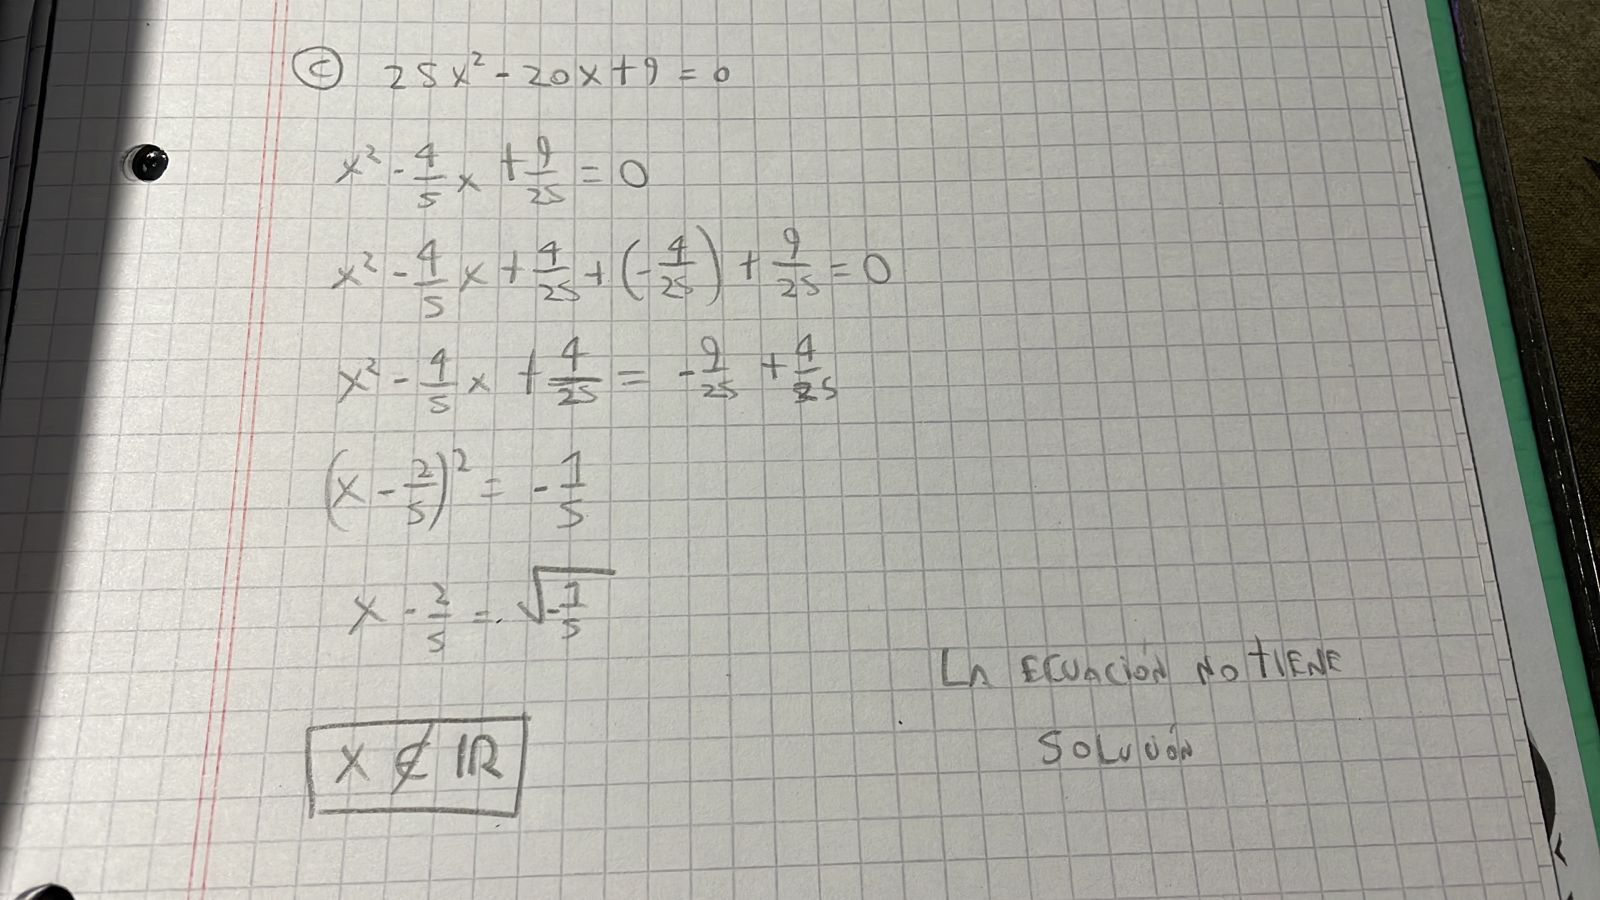 c 25x² - 20x + 9 = 0
x² - 4/5 x + 9/25 = 0
x² - 4/5 x + 4/25 + (- 4/25) + 9/25 = 0
x² - 4/5 x + 4/25 = - 9/25 + 4/25
(x - 2/5)² = - 1/5
x - 2/5 = √(- 1/5)
LA ECUACIÓN NO TIENE
SOLUCIÓN
x ∉ ℝ